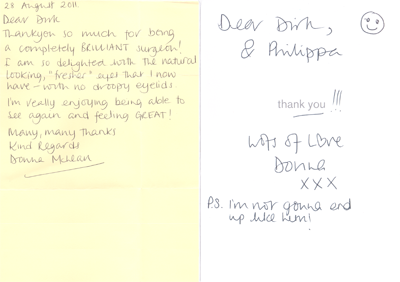 28 August 2011
Dear Dirk
Thankyou so much for being
a completely BRILLIANT surgeon!
I am so delighted with the natural
looking, "fresher" eyes that I now
have – with no droopy eyelids
I'm really enjoying being able to
see again and feeling GREAT!
Many, many thanks
Kind Regards
Donna McLean
Dear Dirk,
& Philippa
thank you !!!
Lots of Love
Donna
xxx
P.S. I'm not gonna end
up like him!